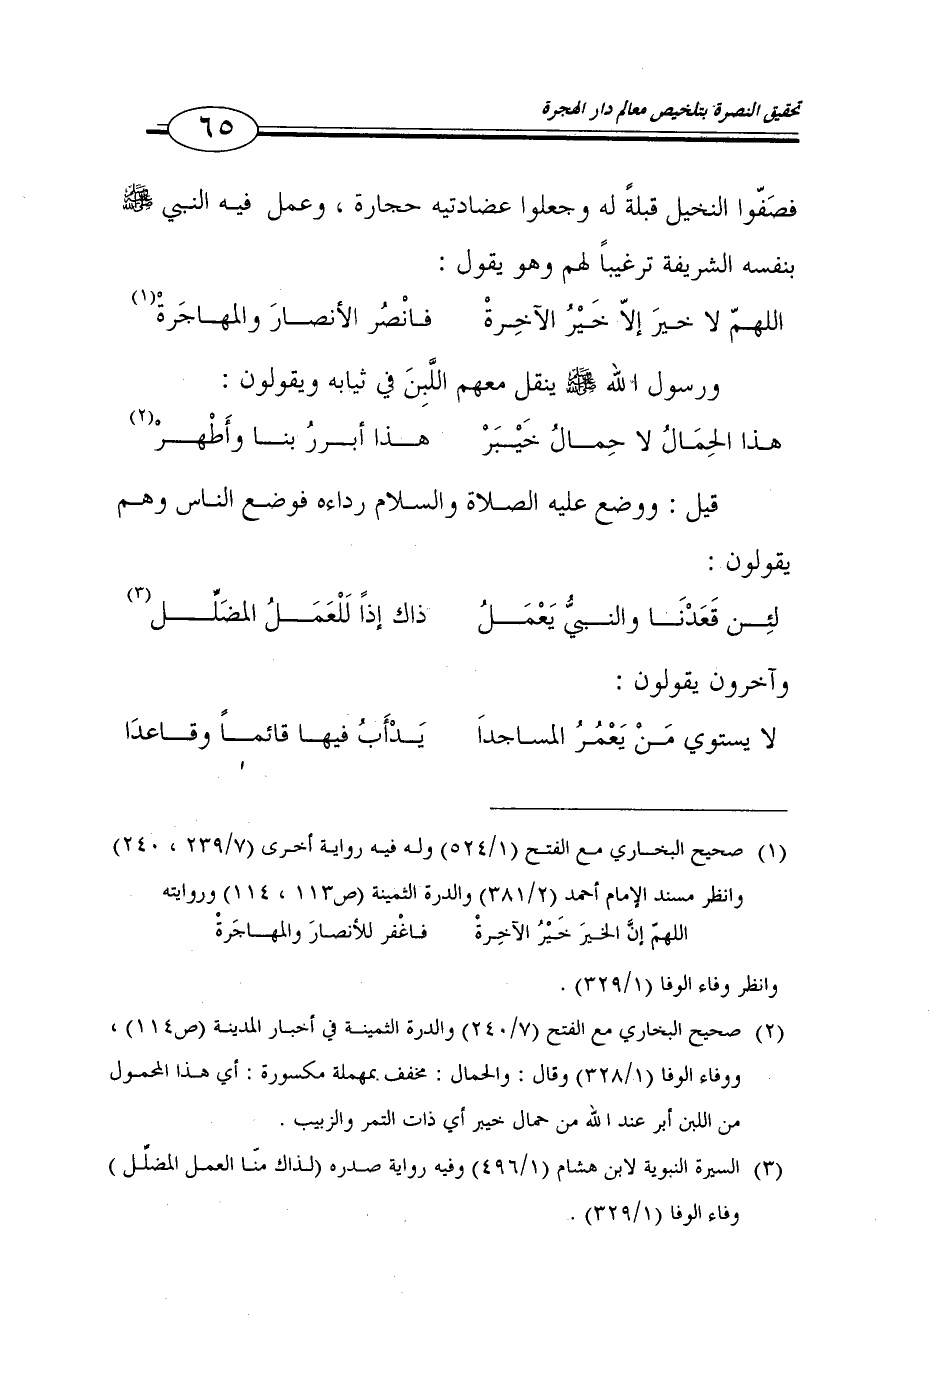 تحقيق النصرة بتلخيص معالم دار الهجرة
٦٥
فصَفّوا النخيل قبلةً له وجعلوا عضادتيه حجارة ، وعمل فيه النبي ﷺ
بنفسه الشريفة ترغيباً لهم وهو يقول :
اللهمّ لا خيرَ إلاّ خَيْرُ الآخِرةْ فانْصُر الأنصارَ والمهاجَرةْ(١)
ورسول الله ﷺ ينقل معهم اللَّبِنَ في ثيابه ويقولون :
هذا الحِمَالُ لا حِمالُ خَيْبَرْ هذا أبررُ بنا وأَطْهرْ(٢)
قيل : ووضع عليه الصلاة والسلام رداءه فوضع الناس وهم
يقولون :
لئِن قَعَدْنَا والنبيُّ يَعْمَلُ ذاك إذاً لَلْعَمَلُ المضَلّل(٣)
وآخرون يقولون :
لا يستوي مَنْ يَعْمُرُ المساجداَ يَدْأَبُ فيها قائماً وقاعدَا
(١) صحيح البخاري مع الفتح (٥٢٤/١) وله فيه رواية أخرى (٢٣٩/٧ ، ٢٤٠)
وانظر مسند الإمام أحمد (٣٨١/٢) والدرة الثمينة (ص١١٣ ، ١١٤) وروايته
اللهمّ إنَّ الخيرَ خَيْرُ الآخِرةْ فاغْفر للأنصارَ والمهاجَرةْ
وانظر وفاء الوفا (٣٢٩/١) .
(٢) صحيح البخاري مع الفتح (٢٤٠/٧) والدرة الثمينة في أخبار المدينة (ص١١٤) ،
ووفاء الوفا (٣٢٨/١) وقال : والحمال : مخفف بمهملة مكسورة : أي هذا المحمول
من اللبن أبر عند الله من حمال خيبر أي ذات التمر والزبيب .
(٣) السيرة النبوية لابن هشام (٤٩٦/١) وفيه رواية صدره (لذاك منّا العمل المضلّل )
وفاء الوفا (٣٢٩/١) .